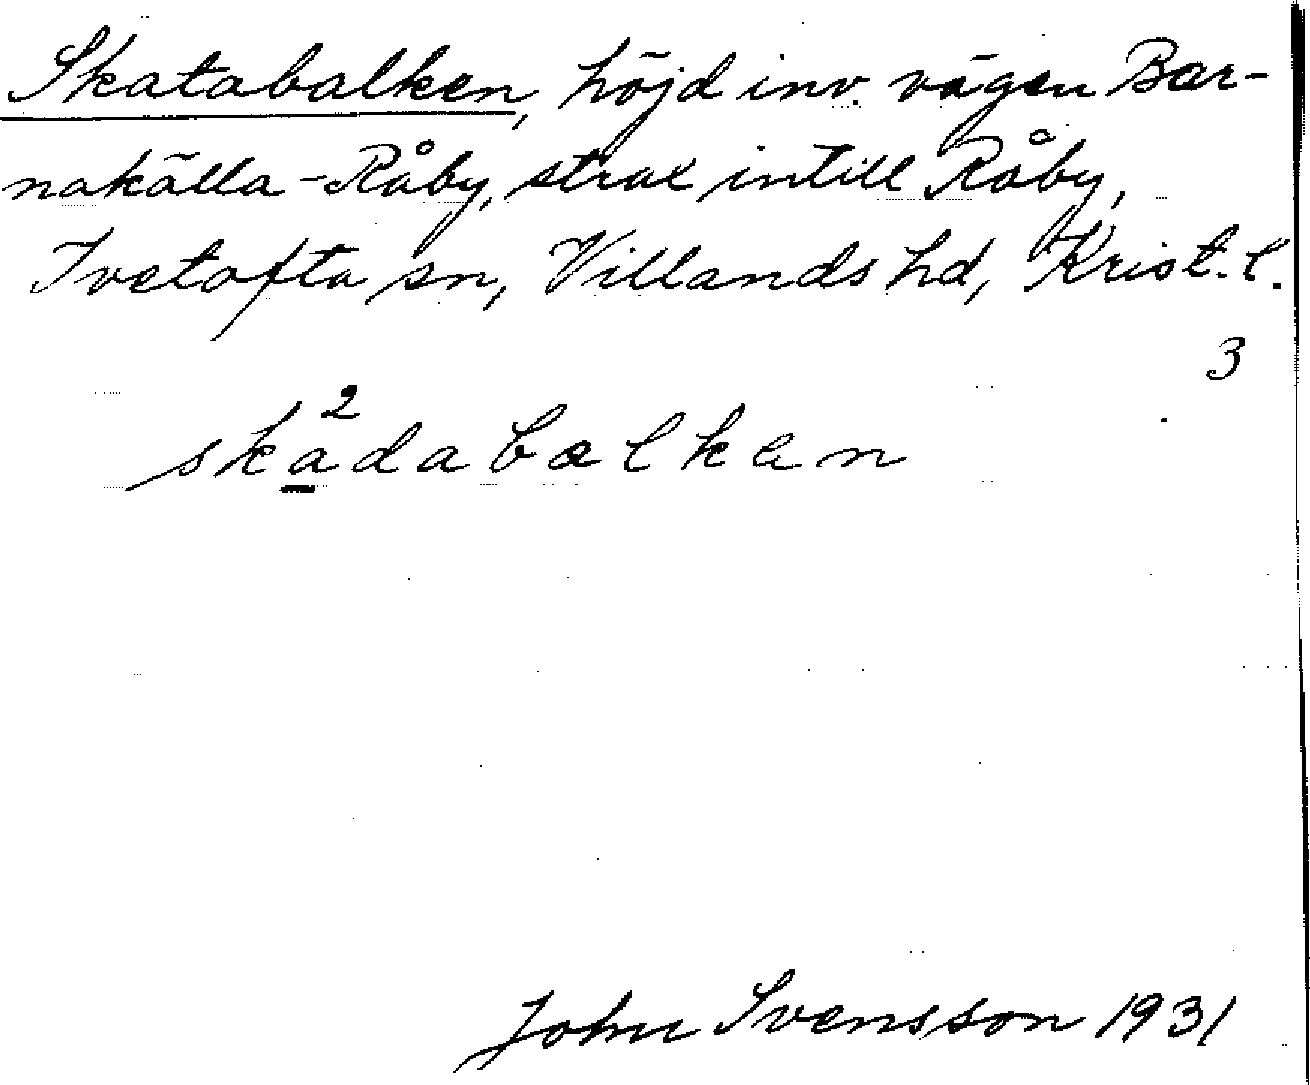 Skatabalken, höjd inv. vägen Bar-
nakälla-Råby, strax intill Råby,
Ivetofta sn, Villands hd, Krist. l.
3
ska²dabalken
John Svensson 1931